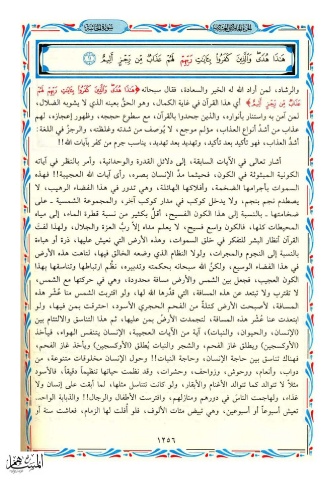 الجزء الخامس والعشرون
سورة الجاثية
هَٰذَا هُدًى وَالَّذِينَ كَفَرُوا بِآيَاتِ رَبِّهِمْ لَهُمْ عَذَابٌ مِّن رِّجْزٍ أَلِيمٌ ﴿١١﴾
والرشاد، لمن أراد الله له الخير والسعادة، فقال سبحانه ﴿هَٰذَا هُدًى وَالَّذِينَ كَفَرُوا بِآيَاتِ رَبِّهِمْ لَهُمْ
عَذَابٌ مِّن رِّجْزٍ أَلِيمٌ﴾ أي هذا القرآن في غاية الكمال، وهو الحقُّ بعينه الذي لا يشوبه الضلال،
لمن آمن به واستنار بأنواره، والذين جحدوا بالقرآن، مع سطوع حججه، وظهور إعجازه، لهم
عذاب من أشدِّ أنواع العذاب، مؤلم موجع، لا يُوصف من شدته وغلظته، والرجزُ في اللغة:
أشدُّ العذاب، فهو تأكيد بعد تأكيد، وتهديد بعد تهديد، يناسب جرم من كفر بآيات الله!!
أشار تعالى في الآيات السابقة، إلى دلائل القدرة والوحدانية، وأمر بالنظر في آياته
الكونية المبثوثة في الكون، فحيثما مدَّ الإنسان بصره، رأى آيات الله العجيبة!! فهذه
السموات بأجرامها الضخمة، وأفلاكها الهائلة، وهي تدور في هذا الفضاء الرهيب، لا
يصطدم نجم بنجم، ولا يدخل كوكب في مدار كوكب آخر، والمجموعة الشمسية ـ على
ضخامتها ـ بالنسبة إلى هذا الكون الفسيح، أقلُّ بكثير من نسبة قطرة الماء، إلى مياه
المحيطات كلها، فالكون واسع فسيح، لا يعلم مداه إلاَّ ربُّ العزة والجلال، ولهذا لفت
القرآن أنظار البشر للتفكر في خلق السموات، وهذه الأرض التي نعيش عليها، ذرة أو هباءة
بالنسبة إلى النجوم والمجرات، ولولا النظام الذي وضعه الخالق فيها، لتاهت هذه الأرض
في هذا الفضاء الوسيع، ولكنَّ الله سبحانه بحكمته وتدبيره، نظَّم ارتباطها وتناسقها بهذا
الكون العجيب، فجعل بين الشمس والأرض مسافة محدودة، وهي في حركتها مع الشمس،
لا تقترب ولا تبتعد عن هذه المسافة، التي قدَّرها الله لها، ولو اقتربت الشمس منا عُشر هذه
المسافة، لأصبحت الأرض كتلةً من الفحم الحجري الأسود، احترقت بمن فيها، ولو
ابتعدت عنا عُشر هذه المسافة، لتجمدت الأرضُ بمن عليها، ثم هذا التناسق والالتئام بين
(الإنسان، والحيوان، والنبات)، آية من الآيات العجيبة، الإنسان يتنفس الهواء، فيأخذ
(الأوكسجين) ويطلق غاز الفحم، والشجر والنبات يُطلق (الأوكسجين) ويأخذ غاز الفحم،
فهناك تناسق بين حاجة الإنسان، وحاجة النبات!! وحول الإنسان مخلوقات متنوعة، من
دواب، وأنعام، ووحوش، وزواحف، وحشرات، وقد نظمت حياتها تنظيماً دقيقاً، فالأسود
مثلاً لا تتوالد كما تتوالد الأغنام والأبقار، ولو كانت تتناسل مثلها، لما أبقت على إنسان ولا
غذاء، ولهاجمت الناس في دورهم ومنازلهم، وافترست الأطفال والرجال!! والذبابة الواحدة..
تعيش أسبوعاً أو أسبوعين، وهي تبيض مئات الألوف، فلو أُفلت لها الزمام، فعاشت سنة أو
١٢٥٦